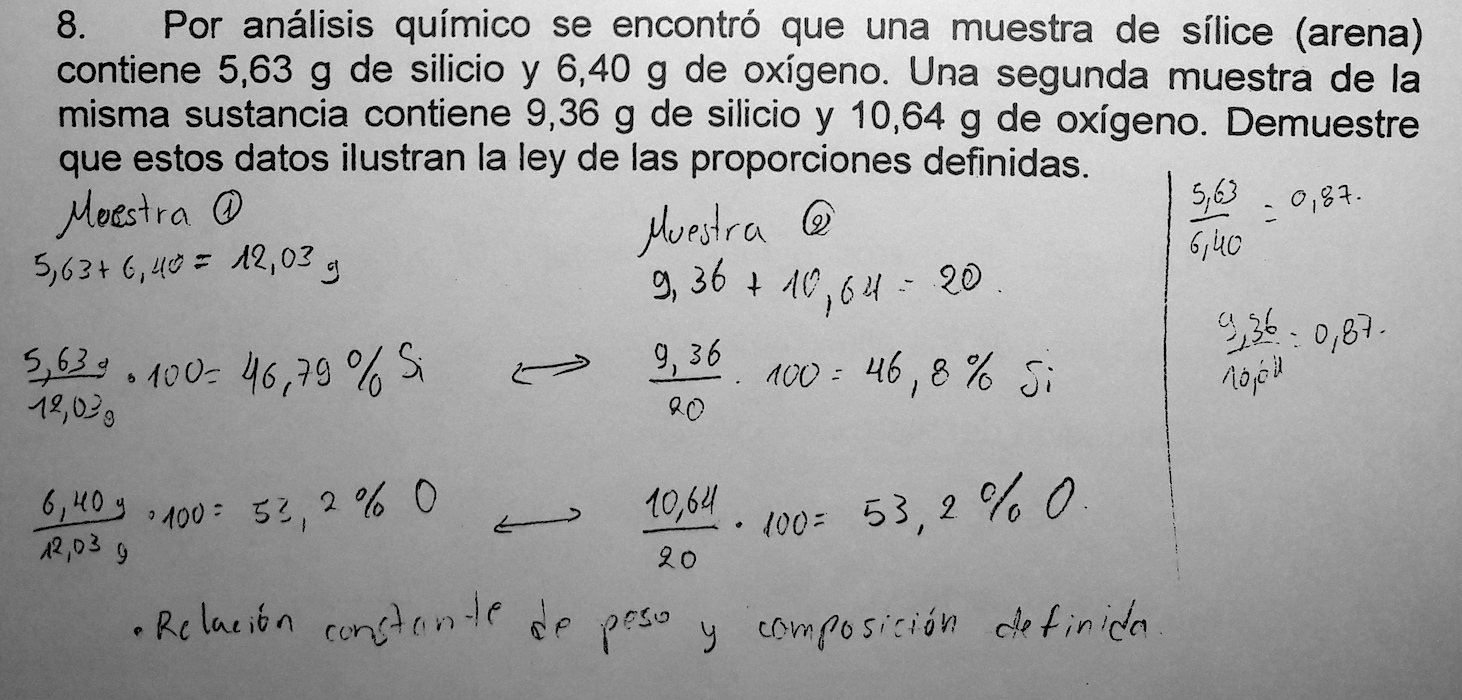 8. Por análisis químico se encontró que una muestra de sílice (arena)
contiene 5,63 g de silicio y 6,40 g de oxígeno. Una segunda muestra de la
misma sustancia contiene 9,36 g de silicio y 10,64 g de oxígeno. Demuestre
que estos datos ilustran la ley de las proporciones definidas.
Muestra ①
5,63 + 6,40 = 12,03 g
5,63 g / 12,03 g · 100 = 46,79 % Si
6,40 g / 12,03 g · 100 = 53,2 % O
Muestra ②
9,36 + 10,64 = 20.
9,36 / 20 · 100 = 46,8 % Si
10,64 / 20 · 100 = 53,2 % O.
5,63 / 6,40 = 0,87.
9,36 / 10,64 = 0,87.
• Relación constante de peso y composición definida.